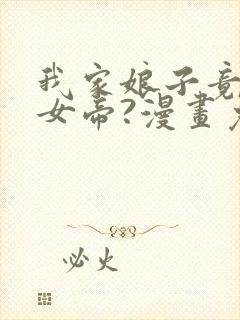 我家娘子竟
女帝?漫畫
必火